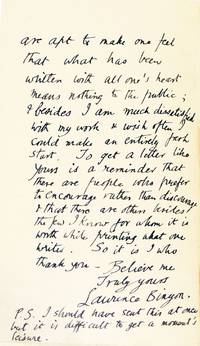 are apt to make one feel
that what has been
written with all one's heart
means nothing to the public;
& besides I am much dissatisfied
with my work & wish often I
could make an entirely fresh
start. To get a letter like
yours is a reminder that
there are people who prefer
to encourage rather than discourage
& that there are others besides
the few I know for whom it is
worth while printing what one
writes. So it is I who
thank you — Believe me
Truly yours
Laurence Binyon.
P.S. I should have sent this at once
but it is difficult to get a moment's
leisure.